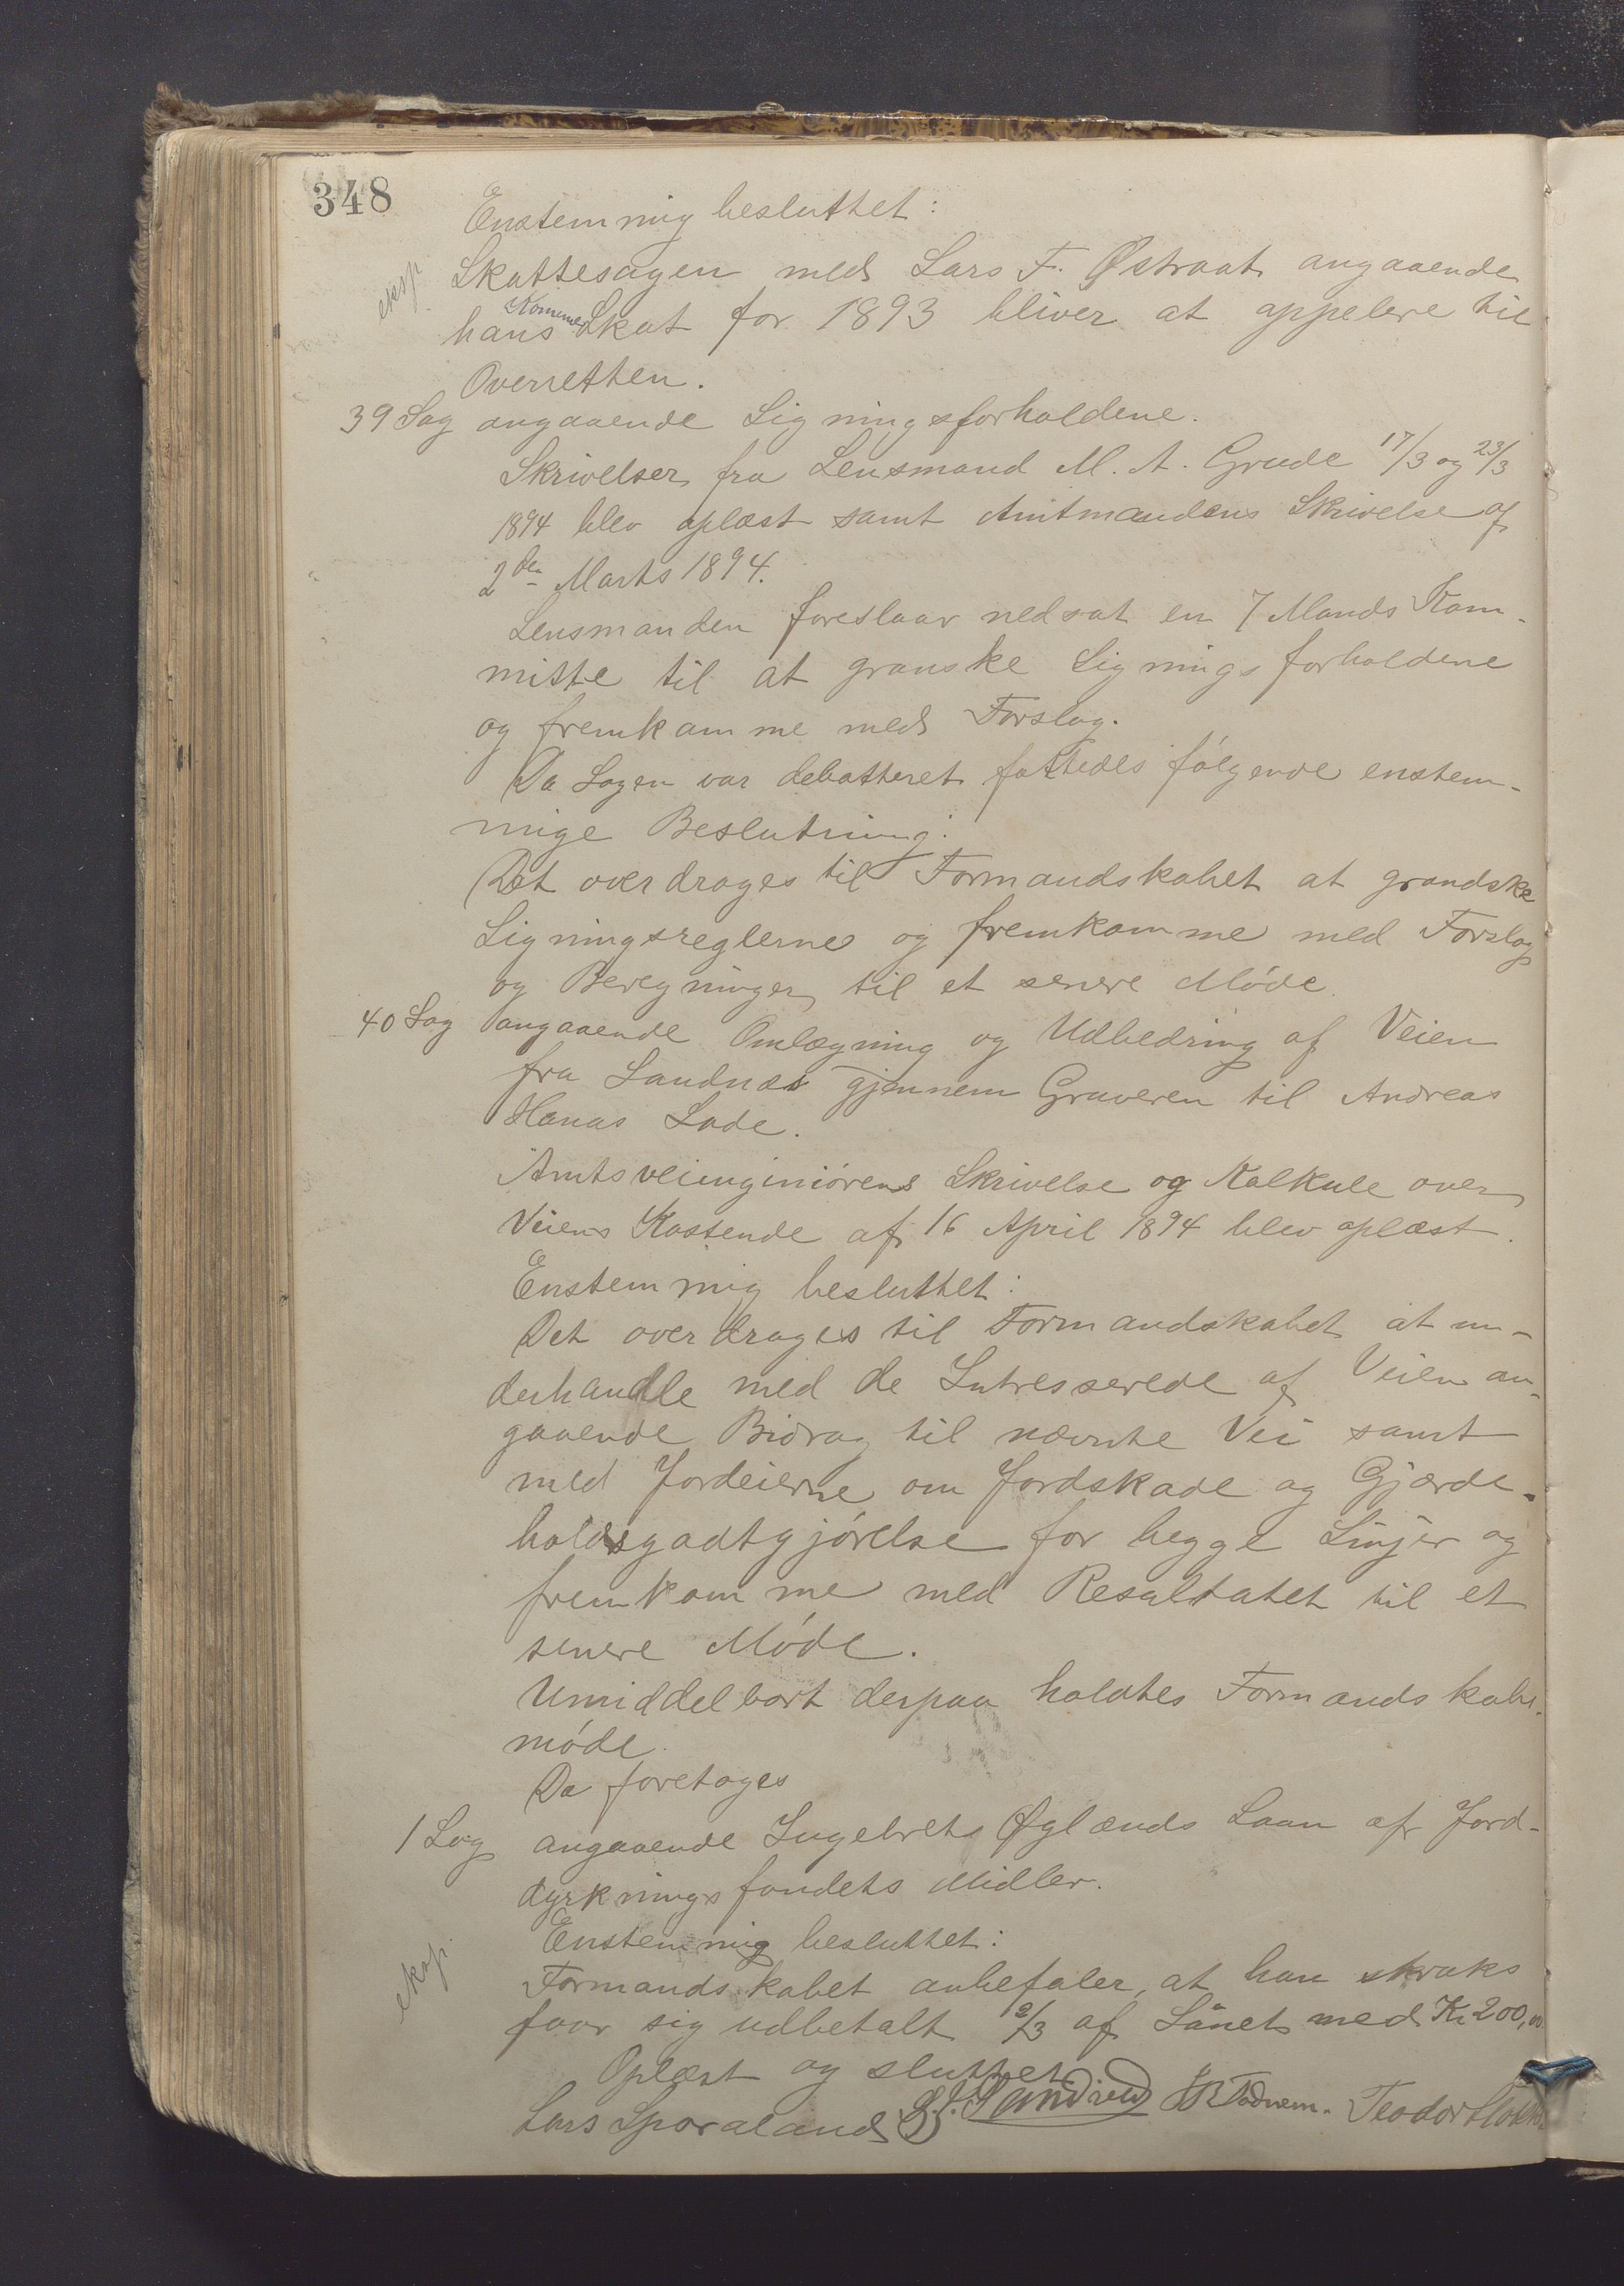 348
Enstemmig besluttet:
eksp. Skattesagen med Lars F. Østraat angaaende
hans Komme Skat for 1893 bliver at appelere til
Overretten.
39 Sag angaaende Ligningsforholdene.
Skrivelser fra Lensmand M. A. Grude 17/3 og 23/3
1894 blev oplæst samt Amtmandens Skrivelse af
2den Marts 1894.
Lensmanden foreslaar nedsat en 7 Mands Kom-
mitte til at granske Ligningsforholdene
og fremkomme med Forslag.
Da Sagen var debatteret fattedes følgende enstem-
mige Beslutning:
Det overdrages til Formandskabet at grandske
Ligningsreglerne og fremkomme med Forslag
og Beregninger til et senere Møde.
40 Sag angaaende Omlægning og Udbedring af Veien
fra Sandnæs gjennem Graveren til Andreas
Hanas Lade.
Amtsveiinginiørens Skrivelse og Kalkule over
Veiens Kostende af 16 April 1894 blev oplæst.
Enstemmig besluttet:
Det overdrages til Formandskabet at un-
derhandle med de Intresserede af Veien an-
gaaende Bidrag til nævnte Vei samt
med Jordeierne om Jordskade og Gjærde-
holdsgodtgjørelse for begge Linjer og
fremkomme med Resultatet til et
senere Møde.
Umiddelbart derpaa holdtes Formandskabs-
møde.
Da foretoges
1 Sag angaaende Ingebrets Øglænds Laan af Jord-
dyrkningsfondets Midler.
Enstemmig besluttet:
eksp. Formandskabet anbefaler, at han straks
faar sig udbetalt 2/3 af Lånet med Kr 200,00
Oplæst og sluttet
Lars Sporaland Tødnem. Teodor